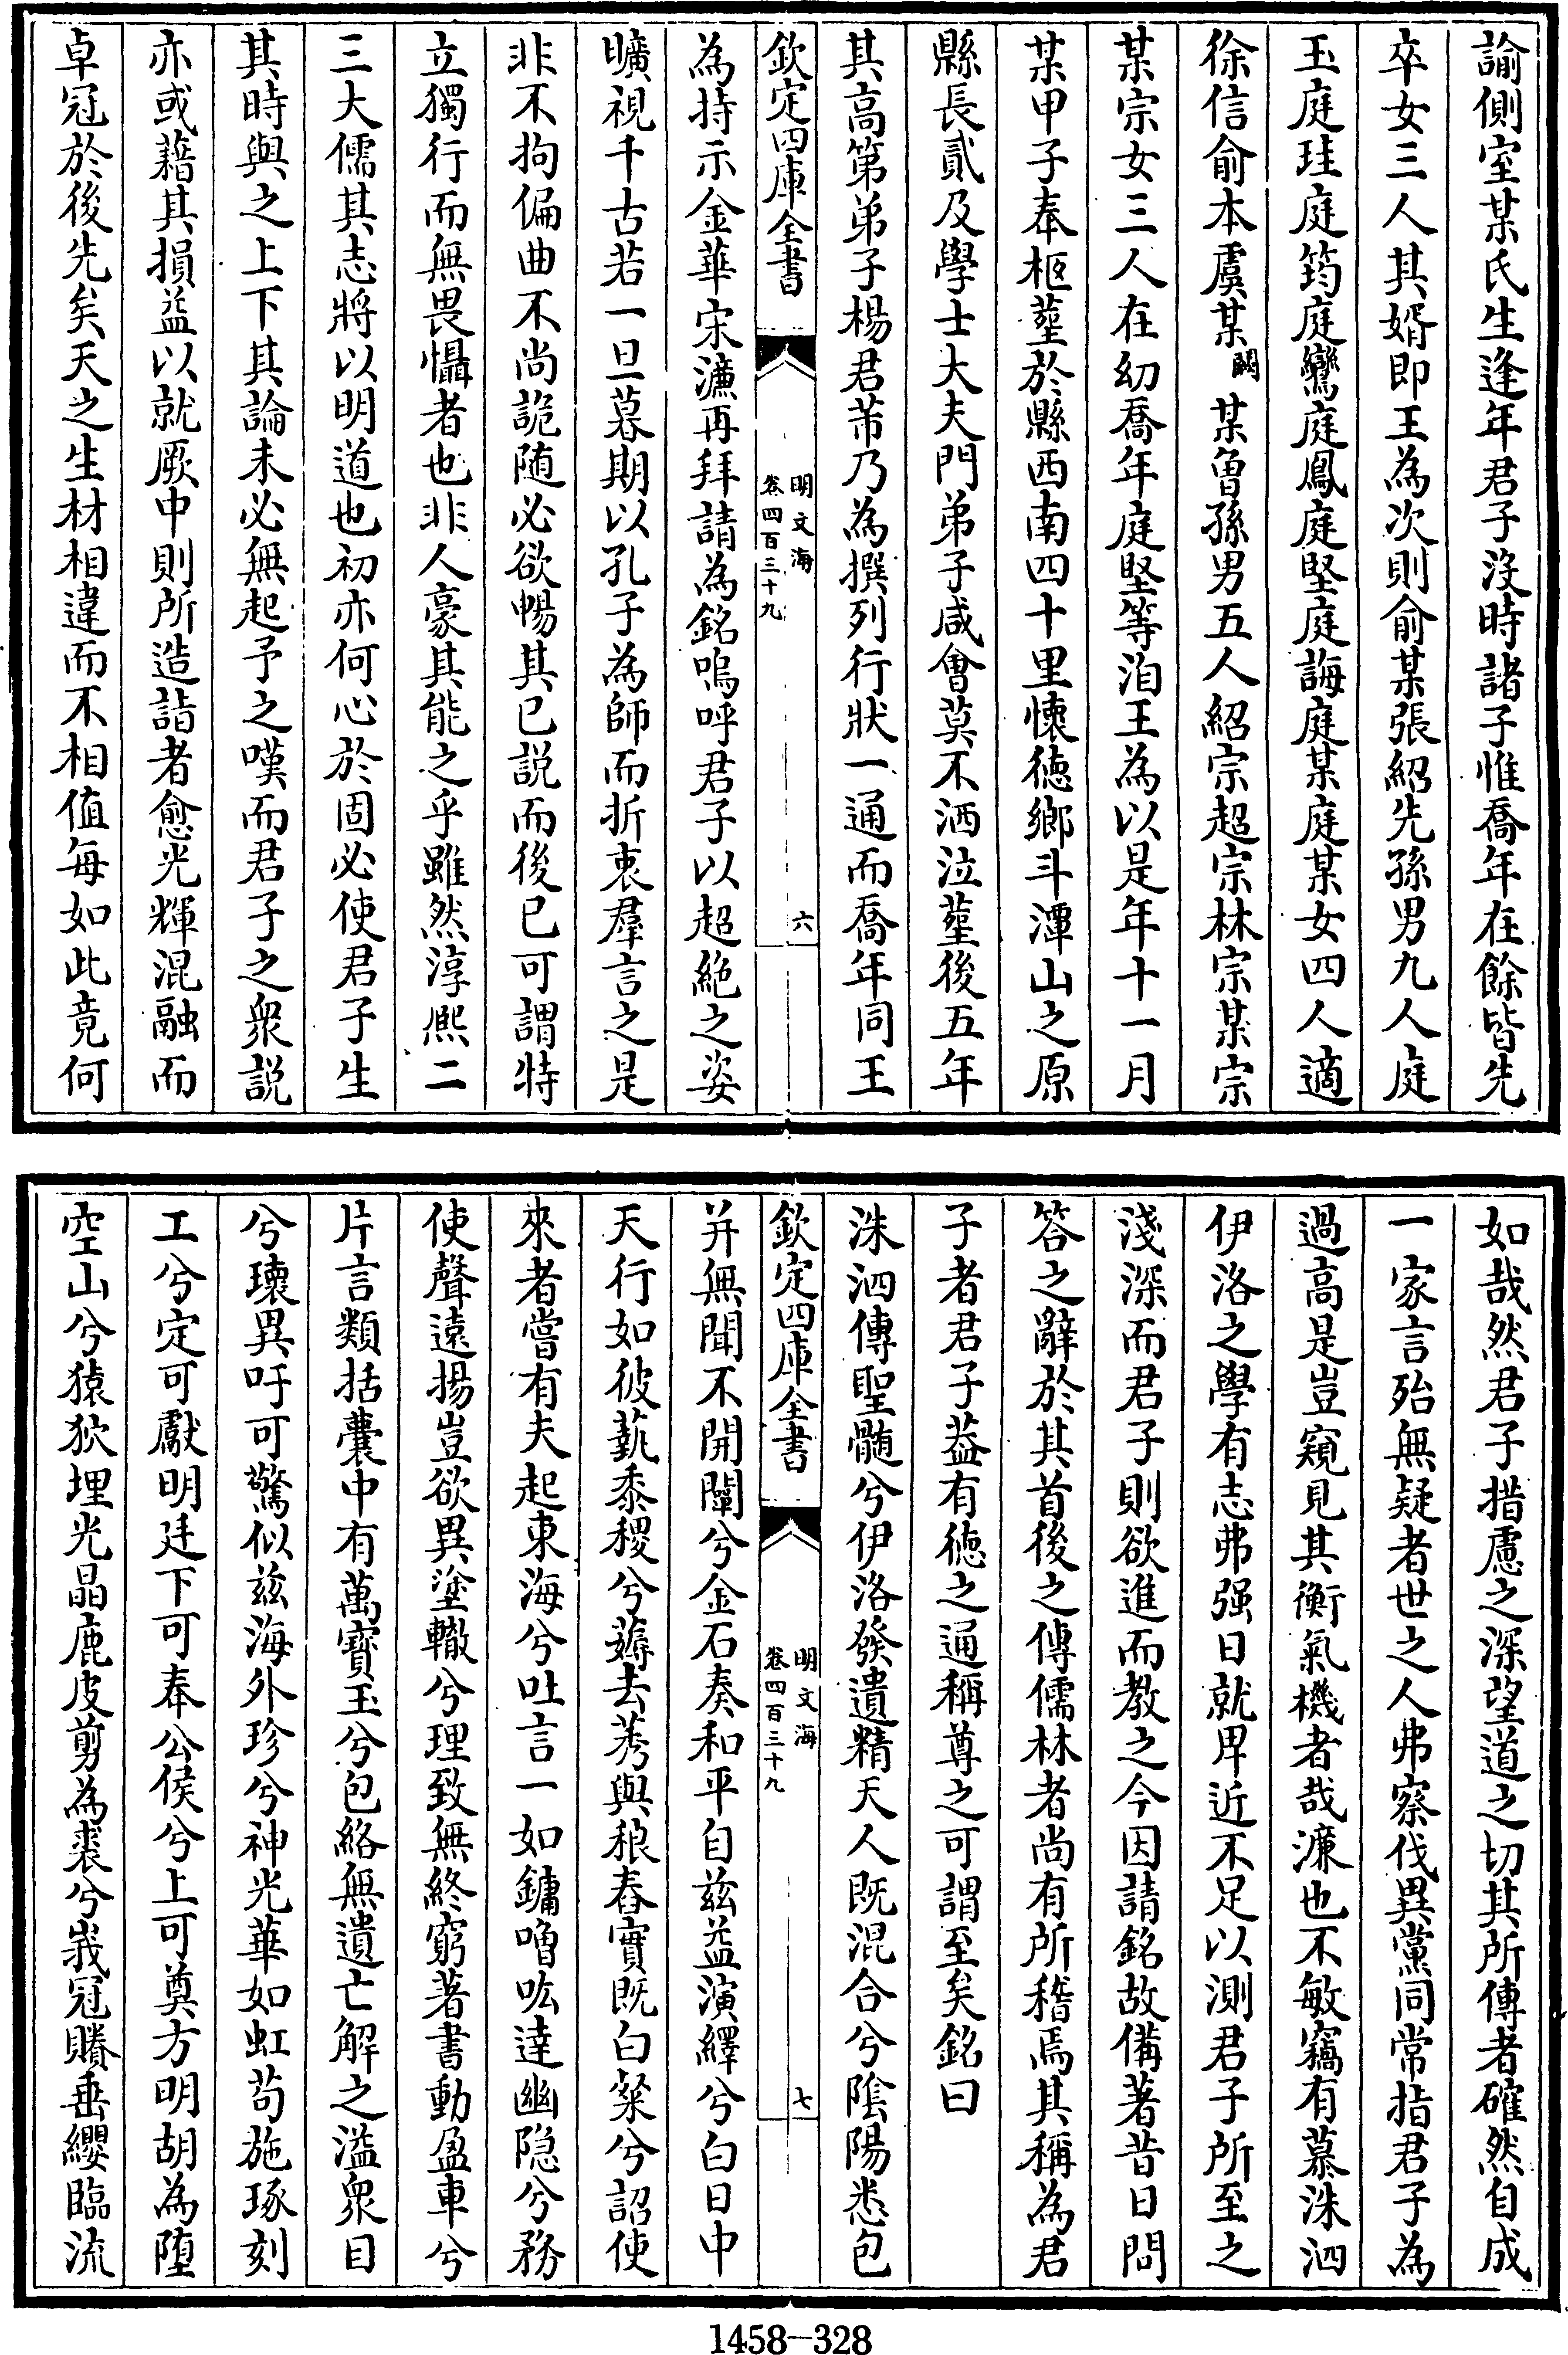 諭側室某氏生逢年君子沒時諸子惟喬年在餘皆先
卒女三人其婿即王為次則俞某張紹先孫男九人庭
玉庭珪庭筠庭鸞庭鳳庭堅庭誨庭某庭某女四人適
徐信俞本虞某闕某曾孫男五人紹宗超宗林宗某宗
某宗女三人在幼喬年庭堅等洎王為以是年十一月
某甲子奉柩塟於縣西南四十里懷德鄉斗潭山之原
縣長貳及學士大夫門弟子咸會莫不洒泣塟後五年
其高第弟子楊君芾乃為撰列行狀一通而喬年同王
欽定四庫全書
明文海
卷四百三十九
六
為持示金華宋濂再拜請為銘嗚呼君子以超絶之姿
曠視千古若一旦暮期以孔子為師而折衷羣言之是
非不拘偏曲不尚詭随必欲暢其已説而後已可謂特
立獨行而無畏懾者也非人豪其能之乎雖然淳熙二
三大儒其志將以明道也初亦何心於固必使君子生
其時與之上下其論未必無起予之嘆而君子之衆説
亦或藉其損益以就厥中則所造詣者愈光輝混融而
卓冠於後先矣天之生材相違而不相值每如此竟何
如哉然君子措慮之深望道之切其所傳者確然自成
一家言殆無疑者世之人弗察伐異黨同常指君子為
過高是豈窺見其衡氣機者哉濂也不敏竊有慕洙泗
伊洛之學有志弗强日就卑近不足以測君子所至之
淺深而君子則欲進而教之今因請銘故備著昔日問
答之辭於其首後之傳儒林者尚有所稽焉其稱為君
子者君子葢有德之通稱尊之可謂至矣銘曰
洙泗傳聖髓兮伊洛發遺精天人既混合兮陰陽悉包
欽定四庫全書
明文海
卷四百三十九
七
并無聞不開闡兮金石奏和平自兹益演繹兮白日中
天行如彼蓺黍稷兮薅去莠與稂舂實既白粲兮詔使
來者嘗有夫起東海兮吐言一如鏞噌吰達幽隐兮務
使聲遠揚豈欲異塗轍兮理致無終窮著書動盈車兮
片言類括囊中有萬寳玉兮包絡無遺亡解之溢衆目
兮瓌異吁可驚似兹海外珍兮神光華如虹苟施琢刻
工兮定可獻明廷下可奉公侯兮上可奠方明胡為墮
空山兮猿狖埋光晶鹿皮剪為裘兮峩冠賸垂纓臨流
1458-328